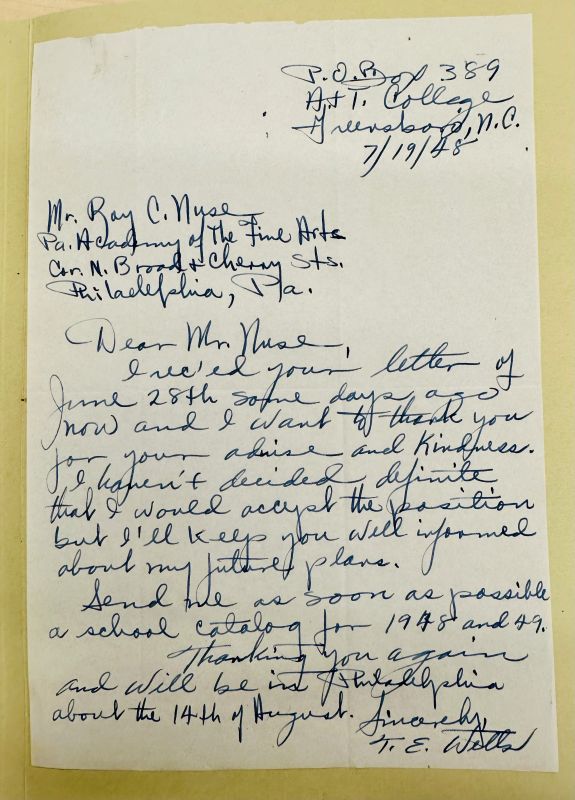 P.O. Box 389
A+T. College
Greensboro, N.C.
7/19/48
Mr. Roy C. Nuse
Pa. Academy of The Fine Arts
Cor. N. Broad + Cherry Sts.
Philadelphia, Pa.
Dear Mr. Nuse,
I rec'ed your letter of
June 28th some days ago
now and I want to thank you
for your advise and kindness.
I haven't decided definite
that I would accept the position
but I'll keep you well informed
about my future plans.
Send me as soon as possible
a school catalog for 1948 and 49.
Thanking you again
and will be in Philadelphia
about the 14th of August.
Sincerely,
T. E.